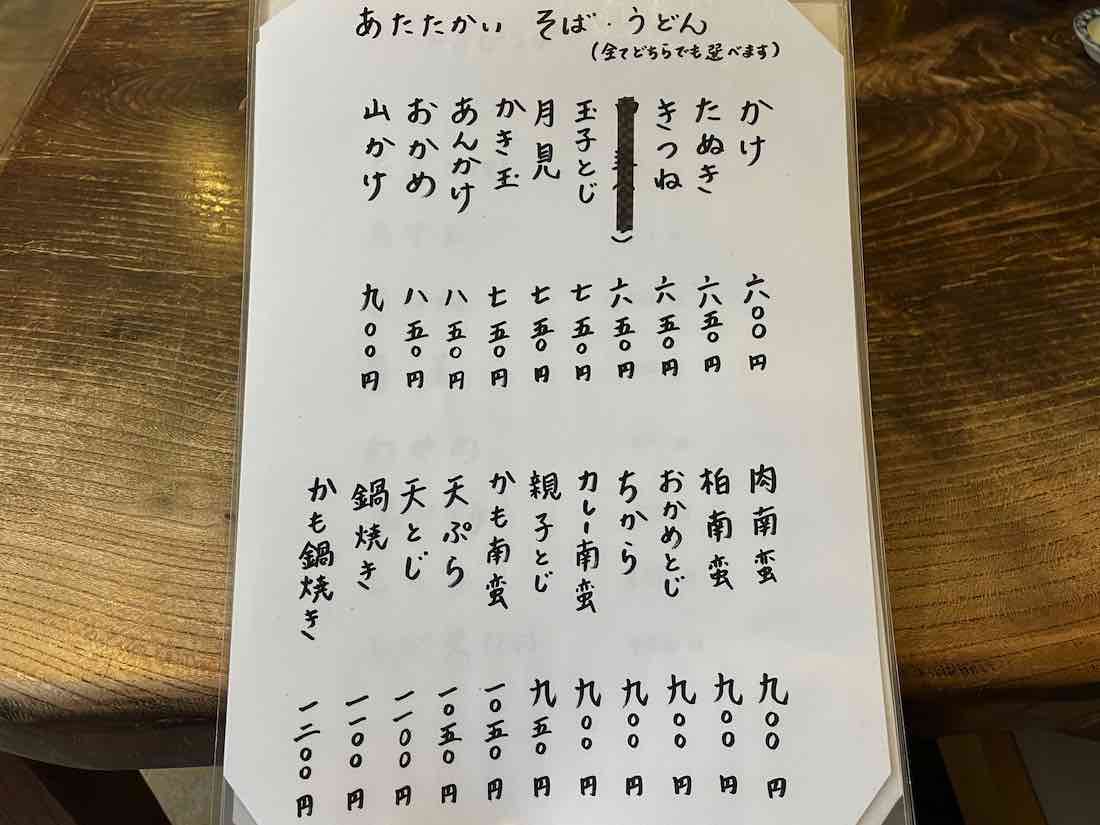 あたたかい そば・うどん
(全てどちらでも選べます)
かけ 六〇〇円
たぬき 六五〇円
きつね 六五〇円
) 六五〇円
玉子とじ 七五〇円
月見 七五〇円
かき玉 七五〇円
あんかけ 八五〇円
おかめ 八五〇円
山かけ 九〇〇円
肉南蛮 九〇〇円
柏南蛮 九〇〇円
おかめとじ 九〇〇円
ちから 九〇〇円
カレー南蛮 九〇〇円
親子とじ 九五〇円
かも南蛮 一〇五〇円
天ぷら 一〇五〇円
天とじ 一一〇〇円
鍋焼き 一一〇〇円
かも鍋焼き 一二〇〇円